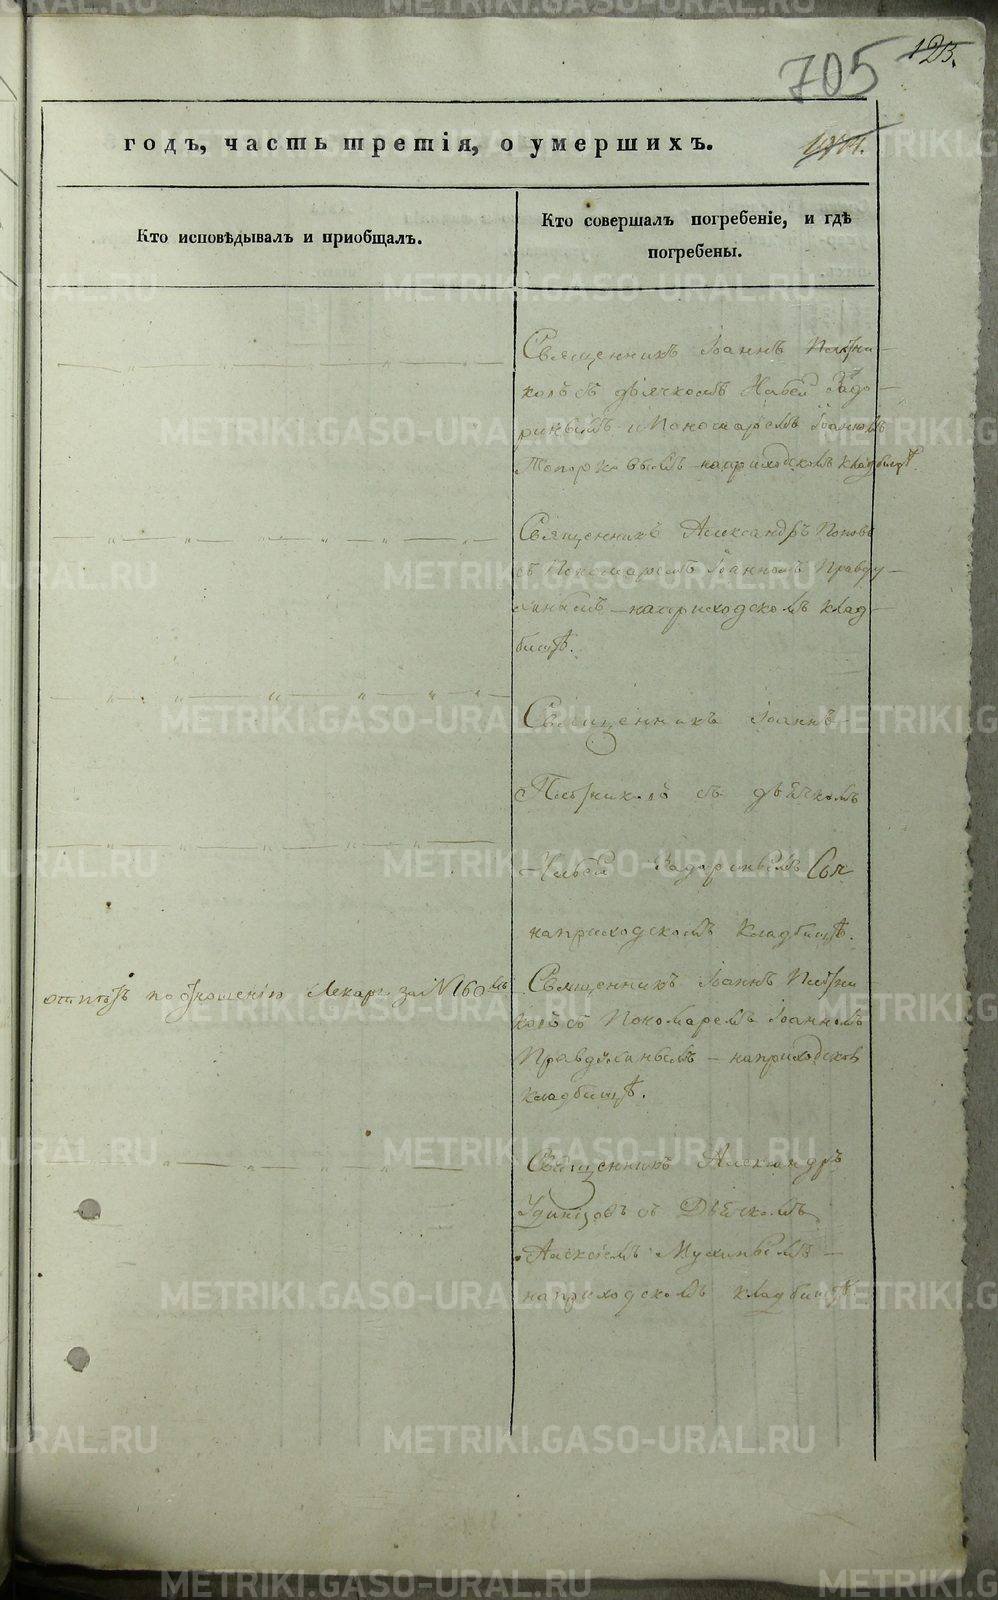 705
123.
годъ, часть третія, о умершихъ.
Кто исповѣдывалъ и приобщалъ.
Кто совершалъ погребеніе, и гдѣ
погребены.
Священникъ Іоаннъ
съ дьячкомъ
и Пономаремъ Іоанномъ
Топорковымъ на приходскомъ кладбищѣ.
Священникъ Александръ Поповъ
съ Пономаремъ Іоанномъ Правду-
хинымъ на приходскомъ клад-
бищѣ.
Священникъ Іоаннъ
съ дьячкомъ
на приходскомъ кладбищѣ.
по отношенію Лекаря за № 160мъ
Священникъ Іоаннъ
съ Пономаремъ Іоанномъ
Правдухинымъ на приходскомъ
кладбищѣ.
Священникъ Александръ
Удинцовъ съ Дьячкомъ
Алексѣемъ Мухинымъ
на приходскомъ кладбищѣ.
METRIKI.GASO-URAL.RU